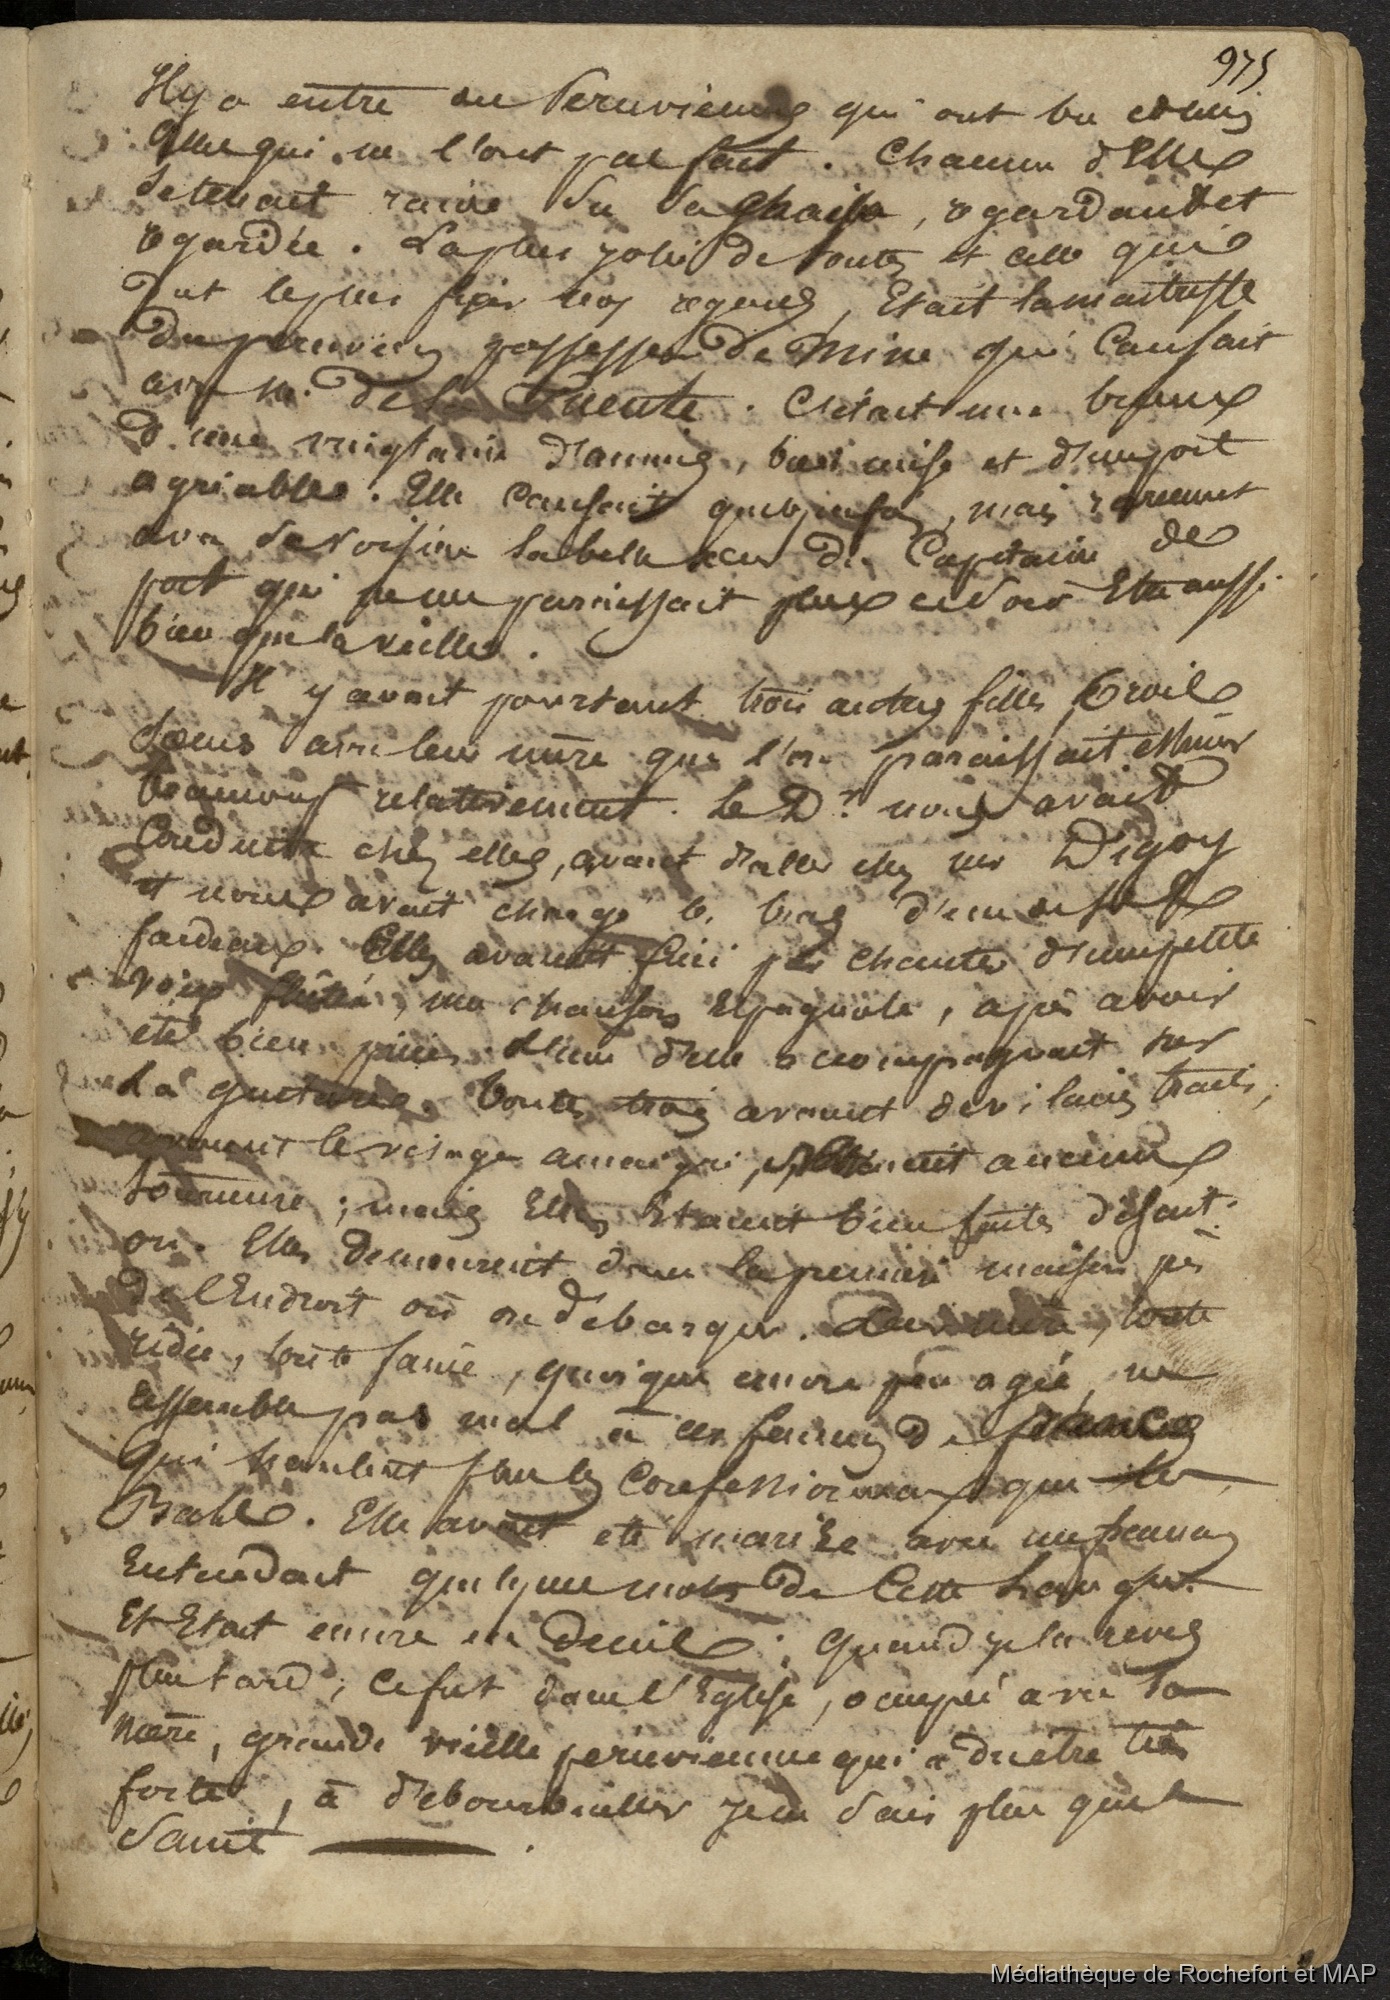 975
Il y a entre un Peruviennes qui ont vu et celles
que qui ne l'ont pas fait. Chacune d'Elles
se tenait raide sur sa chaise, regardant et
regardée. La plus jolie de toutes et celle qui
dut le plus fixer nos regards, Etait la maitresse
du peruvien possesseur de Mine qui Causait
avec Mr. de la Puente. C'était une brune
d'une vingtaine d'années, bien mise et d'un port
agréable. Elle Causait quelquefois, mais rarement
avec sa voisine la belle sœur du Capitaine de
port qui ne me paraissait plus ce soir Etre aussi
bien que la veille.
Il y avait pourtant trois autres filles, trois
sœurs avec leur mère que l'on paraissait estimer
beaucoup relativement. Le Dr. nous avait
Conduit chez elles, avant d'aller chez mr Digoy
et nous avait chargé le bras d'un de ses
fardeaux. Elles avaient fini par chanter d'une petite
voix flûtée, une chanson Espagnole, après avoir
eté bien priées. L'une d'elle accompagnait sur
La guitare. Toutes trois avaient de vilains traits,
avaient le visage amaigri, aucune
tournure; mais Elles Etaient bien faites disait-
on. Elles demeurent dans la premiere maison près
de l'Endroit où on débarque. Leur mère, toute
ridée, toute fanée, quoique encore peu agée, ne
ressemble pas mal à ces femmes de france
qui hantent plus les Confessionnaux que les
Bals. Elle avait eté mariée avec un francais
Entendait quelques mots de Cette Langue
Et Etait encore en deuil; quand je la revis
plus tard, ce fut dans l'Eglise, occupée avec sa
mère, grande vieille peruvienne qui a du etre très
forte, à débarbouiller je ne sais plus quel
Saint.
Médiathèque de Rochefort et MAP